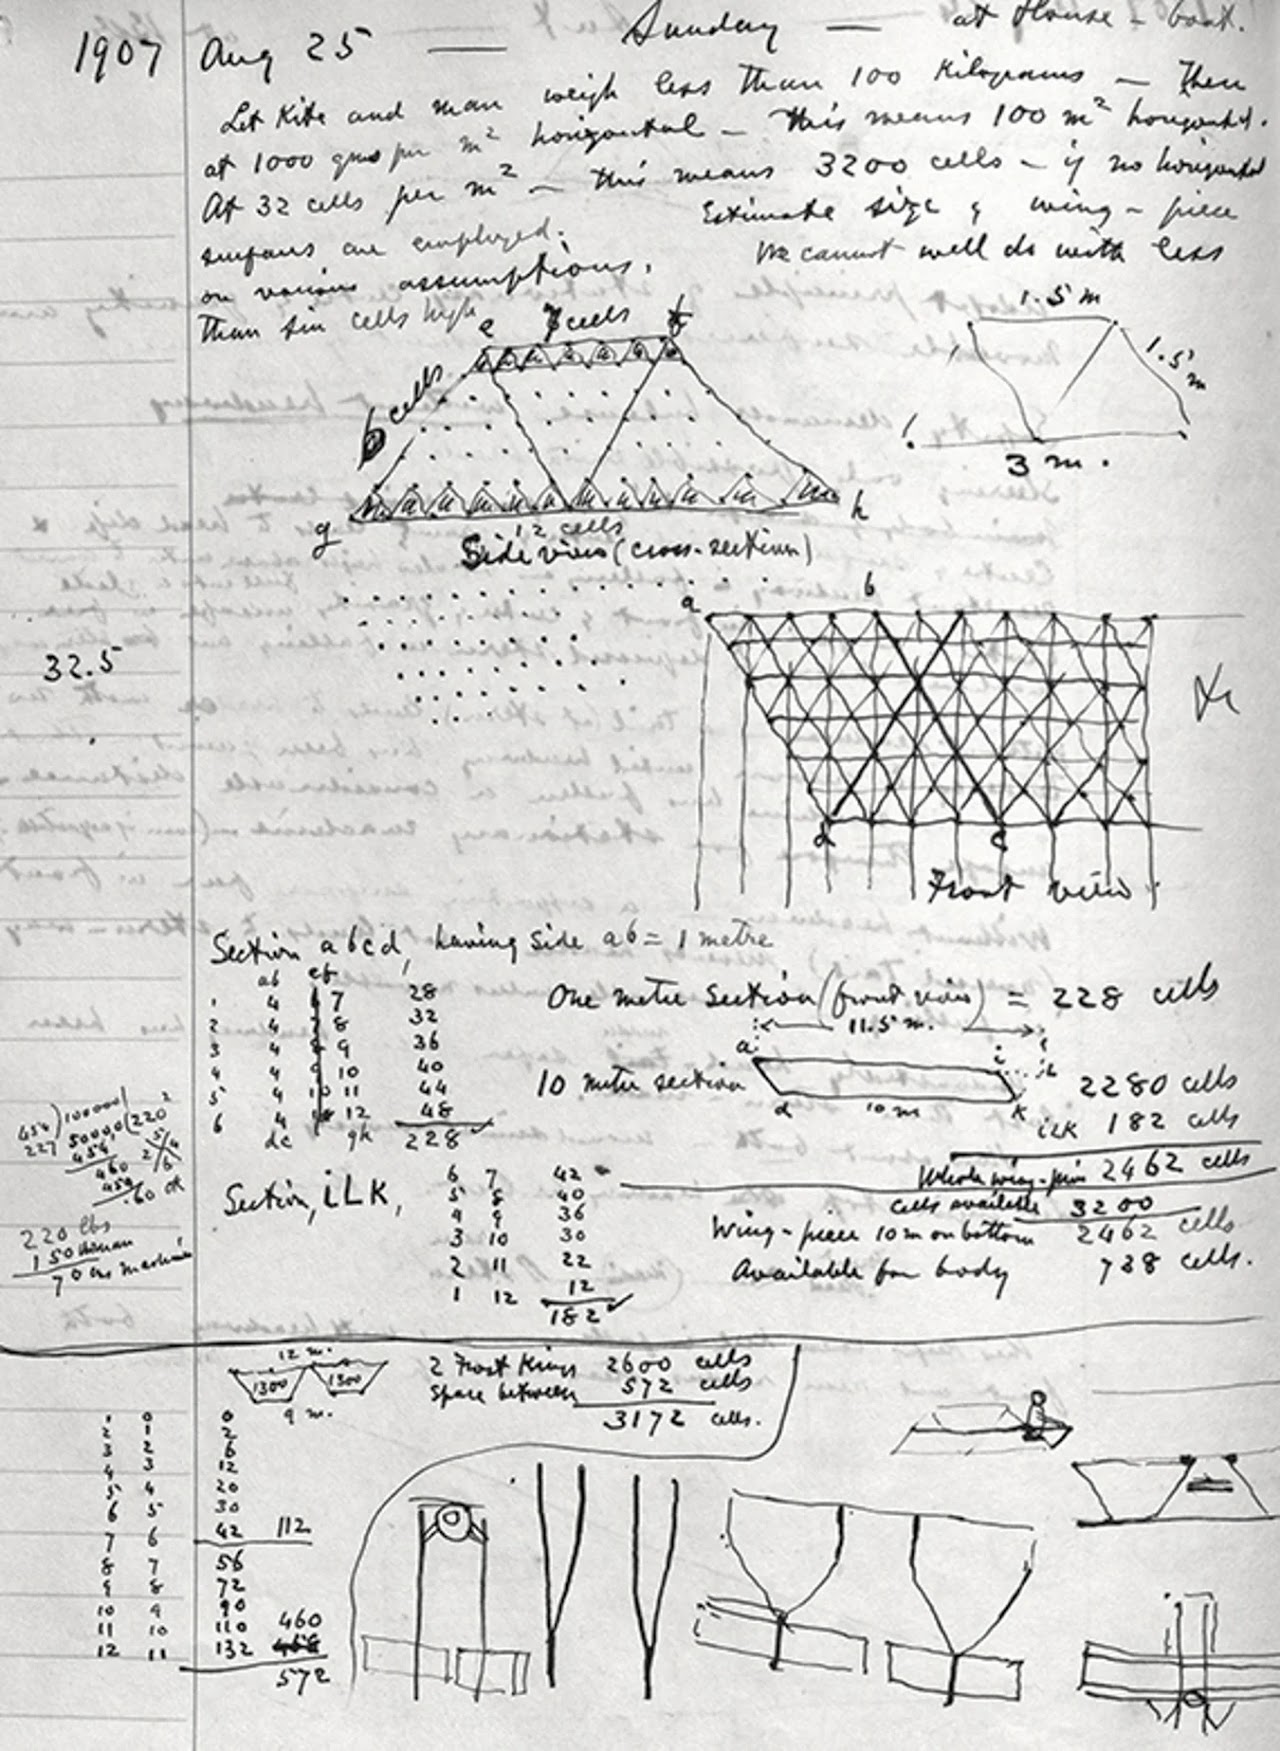 1907 Aug 25 — Sunday — at House-boat.
Let Kite and man weigh less than 100 Kilograms — Then
at 1000 gms per m² horizontal — this means 100 m² horizontal.
At 32 cells per m² — this means 3200 cells — if no horizontal
surfaces are employed. Estimate size of wing-piece
on various assumptions. We cannot well do with less
than six cells high
e 7 cells f
6 cells
g 12 cells h
Side view (cross-section)
1.5 m
1.5 m
3 m.
32.5
a b
d c
Front view
Section abcd, having side ab = 1 metre
ab ef
1 4 7 28
2 4 8 32
3 4 9 36
4 4 10 40
5 4 11 44
6 4 12 48
dc gk 228
One metre section (front view) = 228 cells
11.5 m.
a i L
10 meter section 2280 cells
d 10 m K
iLK 182 cells
Whole wing-piece 2462 cells
cells available 3200
Wing-piece 10 m on bottom 2462 cells
Available for body 738 cells.
Section, iLK,
6 7 42
5 8 40
4 9 36
3 10 30
2 11 22
1 12 12
182
454) 100000 (220
227 50000
454
460
454
60
220 lbs
150 man
70 lbs machine
12 m.
1300 1300
9 m.
2 Frost Kings 2600 cells
Space between 572 cells
3172 cells.
1 0 0
2 1 2
3 2 6
4 3 12
5 4 20
6 5 30
7 6 42 112
8 7 56
9 8 72
10 9 90
11 10 110 460
12 11 132
572